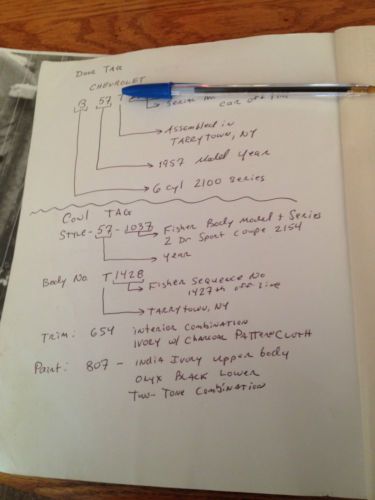 DOOR TAG
CHEVROLET
B 57 T
Serial No.
car off line
Assembled in
TARRYTOWN, NY
1957 Model Year
6 cyl 2100 series
Cowl TAG
STYLE - 57 - 1037
Fisher Body Model + Series
2 Dr Sport Coupe 2154
year
Body No T 1428
Fisher Sequence No
1427th off line
TARRYTOWN, NY
Trim: 654 interior combination
IVORY w/ Charcoal Pattern CLOTH
Paint: 807 - INDIA IVORY upper body
ONYX BLACK Lower
Two-Tone Combination